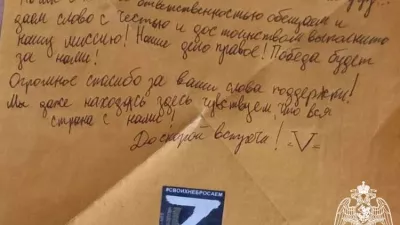 ответственностью обещаем и
даем слово с честью и достоинством выполнить
нашу миссию! Наше дело правое! Победа будет
за нами!
Огромное спасибо за ваши слова поддержки!
Мы даже находясь здесь чувствуем, что вся
страна с нами!
До скорой встречи! -V-
#СВОИХНЕБРОСАЕМ
Z